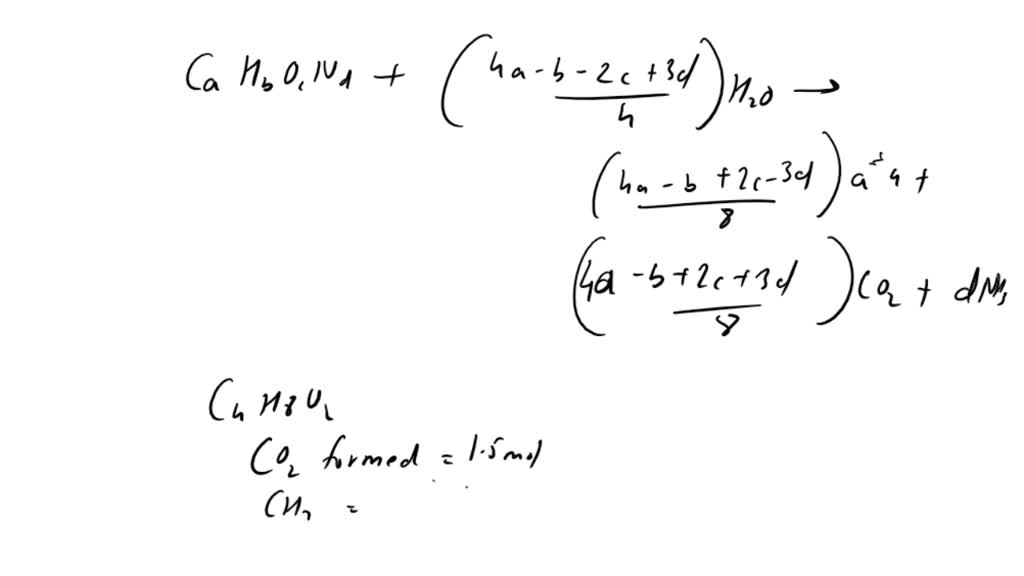 Ca Hb Oc Nd + (4a - b - 2c + 3d / 4) H2O →
(4a - b + 2c - 3d / 8) a 4 +
(4a - b + 2c + 3d / 8) CO2 + dNH3
C4 H8 O2
CO2 formed = 1.5 mol
CH4 =